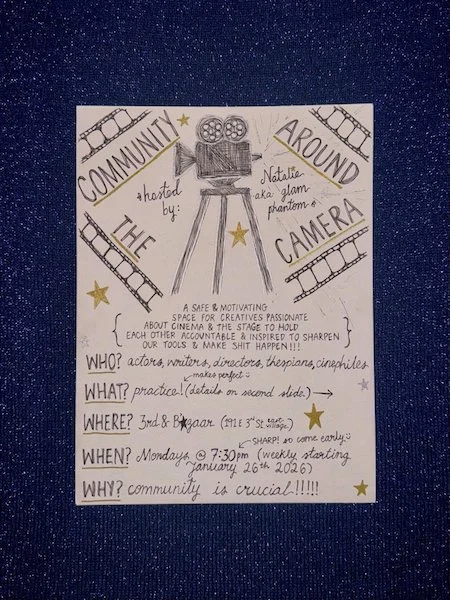 COMMUNITY
AROUND
THE
CAMERA
hosted
by:
Natalie
aka glam
phantom
A SAFE & MOTIVATING
SPACE FOR CREATIVES PASSIONATE
ABOUT CINEMA & THE STAGE TO HOLD
EACH OTHER ACCOUNTABLE & INSPIRED TO SHARPEN
OUR TOOLS & MAKE SHIT HAPPEN!!!
WHO? actors, writers, directors, thespians, cinephiles
makes perfect :)
WHAT? practice! (details on second slide.) →
WHERE? 3rd & B'zaar (191 E 3rd St. east village)
SHARP! so come early :)
WHEN? Mondays @ 7:30pm (weekly starting
January 26th 2026)
WHY? community is crucial!!!!!